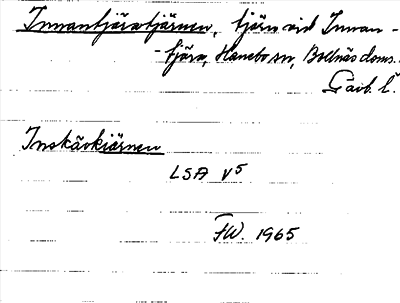 Innantjäratjärnen, tjärn vid Innan-
-tjära, Hanebo sn, Bollnäs doms.
Gävb. l.
Inskävkjärnen
LSA V5
FW. 1965